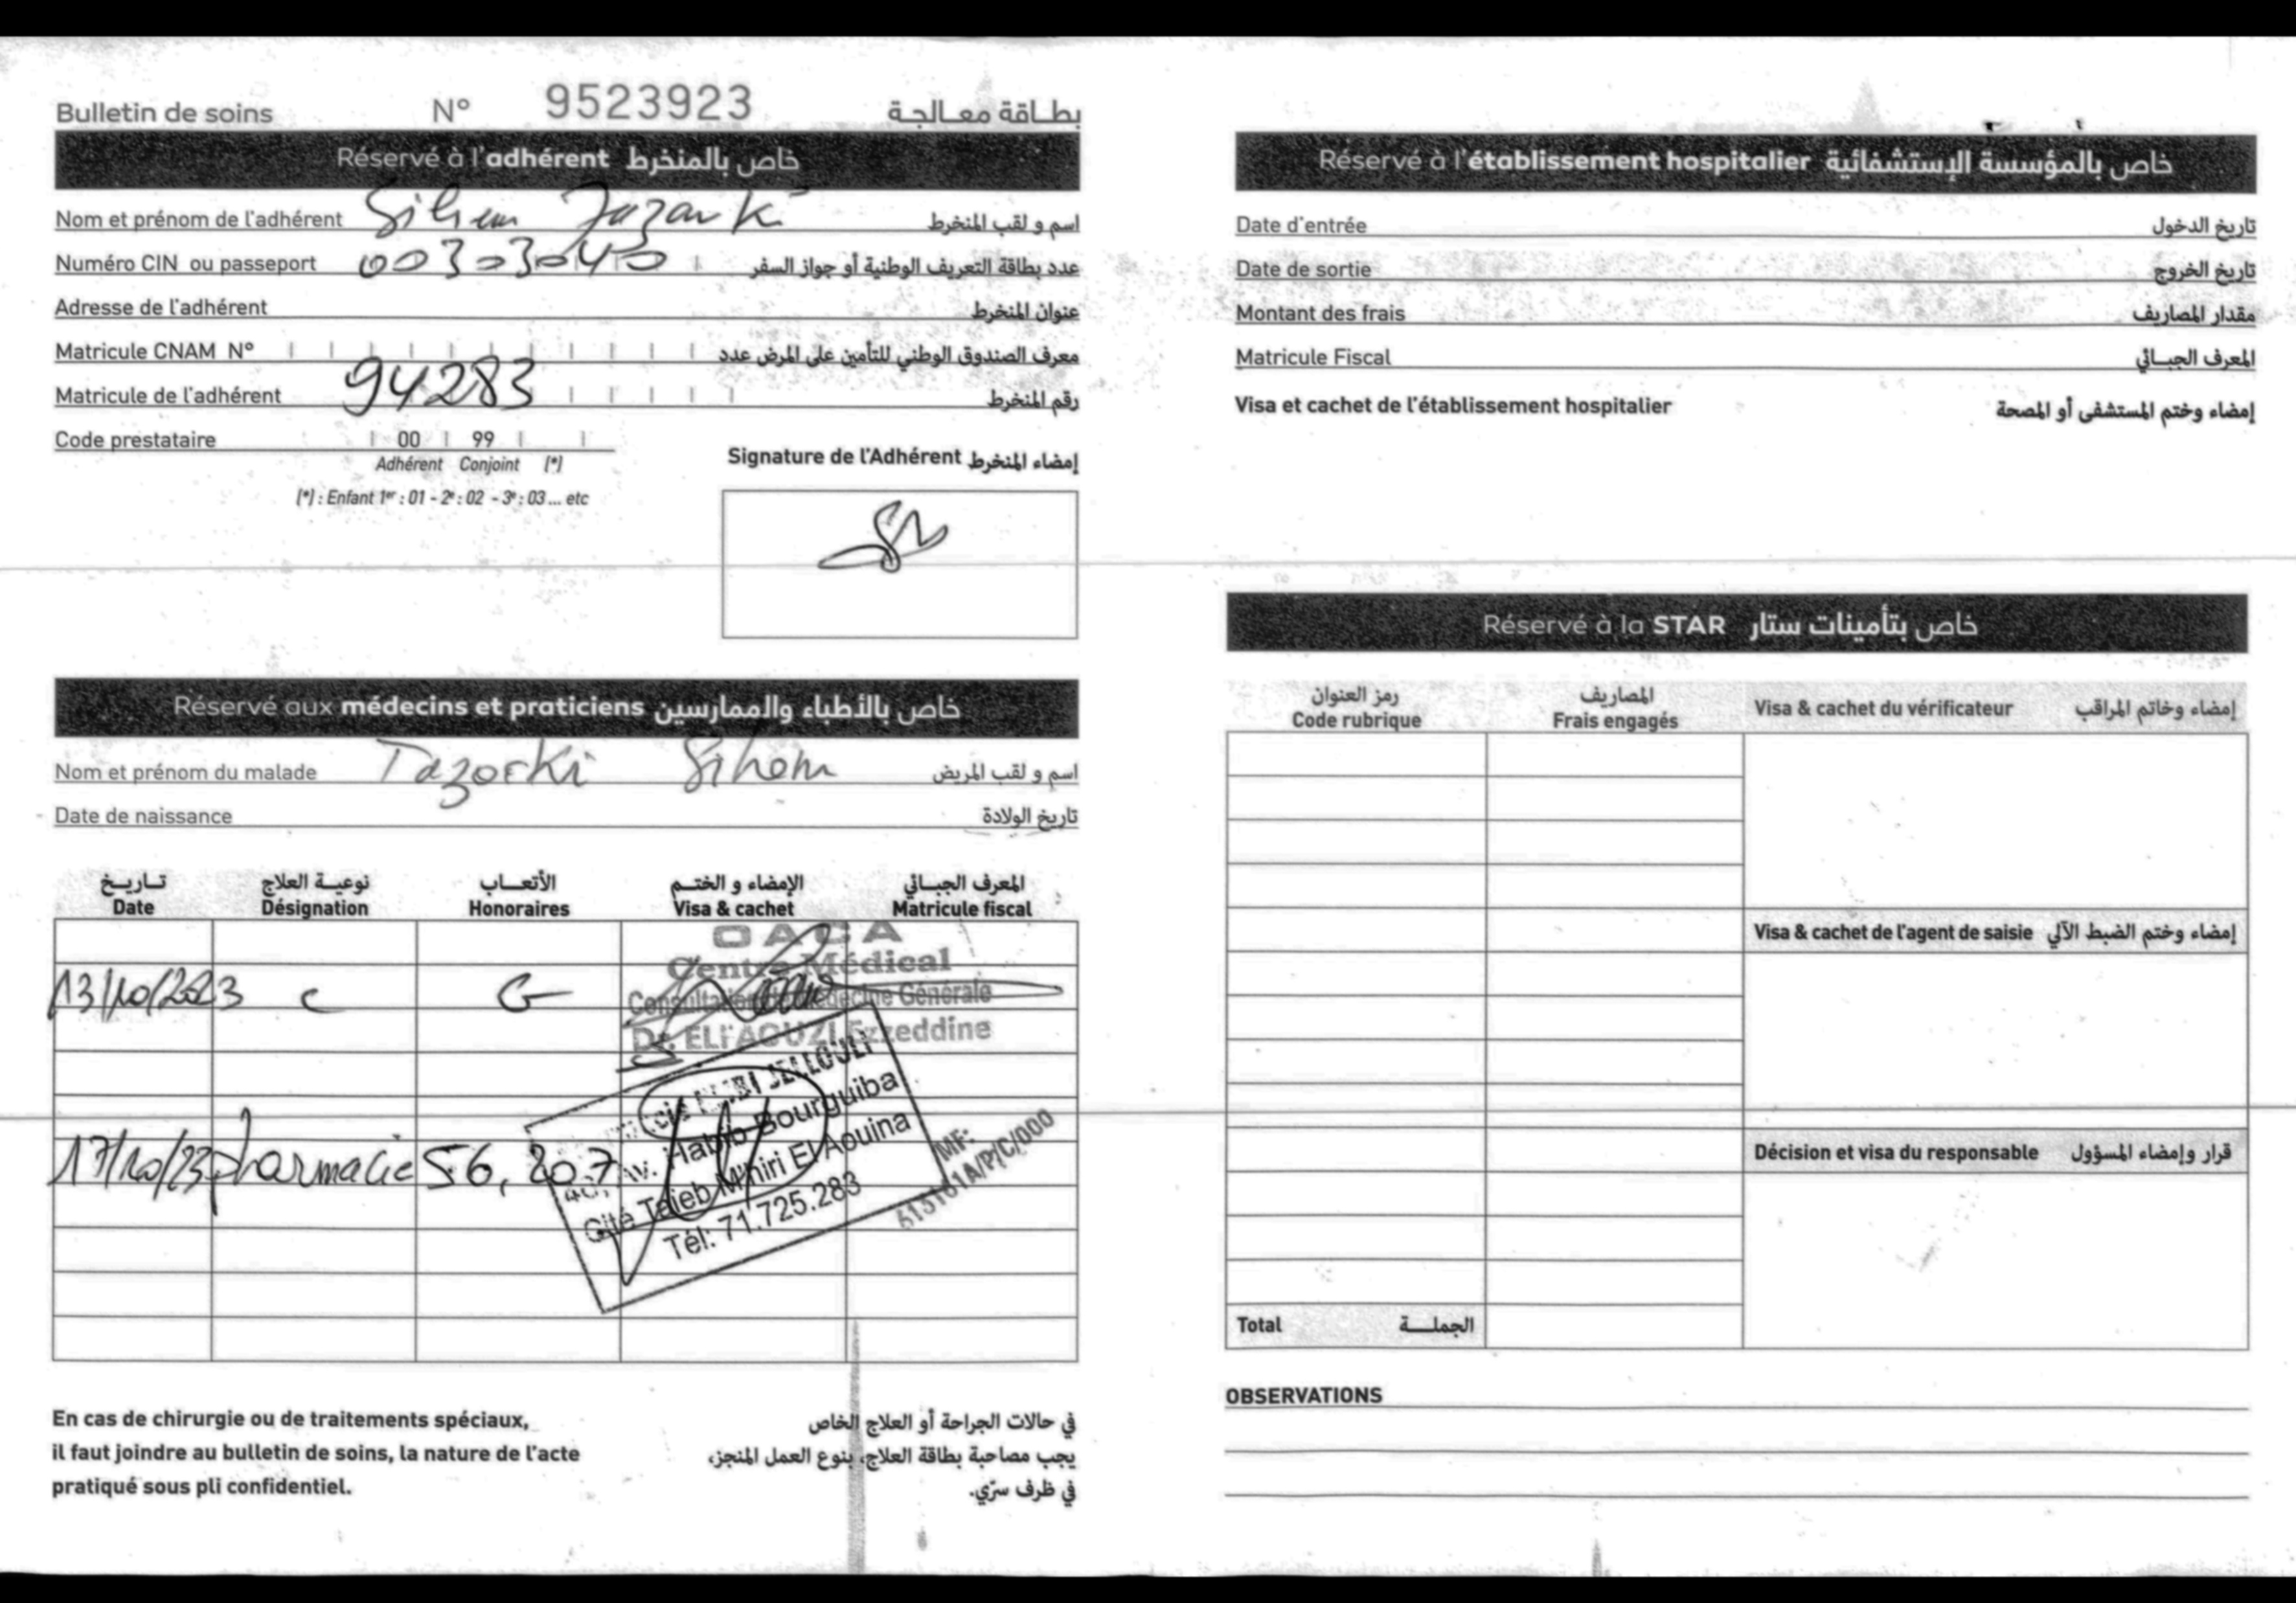 Bulletin de soins N° 9523923 بطاقة معالجة
Réservé à l'adhérent خاص بالمنخرط
Nom et prénom de l'adhérent Sihem اسم و لقب المنخرط
Numéro CIN ou passeport 00303040 عدد بطاقة التعريف الوطنية أو جواز السفر
Adresse de l'adhérent عنوان المنخرط
Matricule CNAM N° معرف الصندوق الوطني للتأمين على المرض عدد
Matricule de l'adhérent 94283 رقم المنخرط
Code prestataire 00 99
Adhérent Conjoint (*)
(*) : Enfant 1er : 01 - 2e : 02 - 3e : 03 ... etc
Signature de l'Adhérent إمضاء المنخرط
Réservé aux médecins et praticiens خاص بالأطباء والممارسين
Nom et prénom du malade Tazorki Sihem اسم و لقب المريض
Date de naissance تاريخ الولادة
تاريخ نوعية العلاج الأتعاب الإمضاء و الختم المعرف الجبائي
Date Désignation Honoraires Visa & cachet Matricule fiscal
OACA
Centre Médical
13/10/2023 C G Consultation de Médecine Générale
Dr. Ezzeddine
JELLOULI
Av. Habib Bourguiba
17/10/23 pharmacie 56,207
Cité Taieb Mhiri El Aouina
Tél: 71.725.283
MF:
En cas de chirurgie ou de traitements spéciaux,
il faut joindre au bulletin de soins, la nature de l'acte
pratiqué sous pli confidentiel.
في حالات الجراحة أو العلاج الخاص
يجب مصاحبة بطاقة العلاج، بنوع العمل المنجز،
في ظرف سرّي.
Réservé à l'établissement hospitalier خاص بالمؤسسة الإستشفائية
Date d'entrée تاريخ الدخول
Date de sortie تاريخ الخروج
Montant des frais مقدار المصاريف
Matricule Fiscal المعرف الجبائي
Visa et cachet de l'établissement hospitalier إمضاء وختم المستشفى أو المصحة
Réservé à la STAR خاص بتأمينات ستار
رمز العنوان المصاريف
Code rubrique Frais engagés Visa & cachet du vérificateur إمضاء وخاتم المراقب
Visa & cachet de l'agent de saisie إمضاء وختم الضبط الآلي
Décision et visa du responsable قرار وإمضاء المسؤول
Total الجملة
OBSERVATIONS